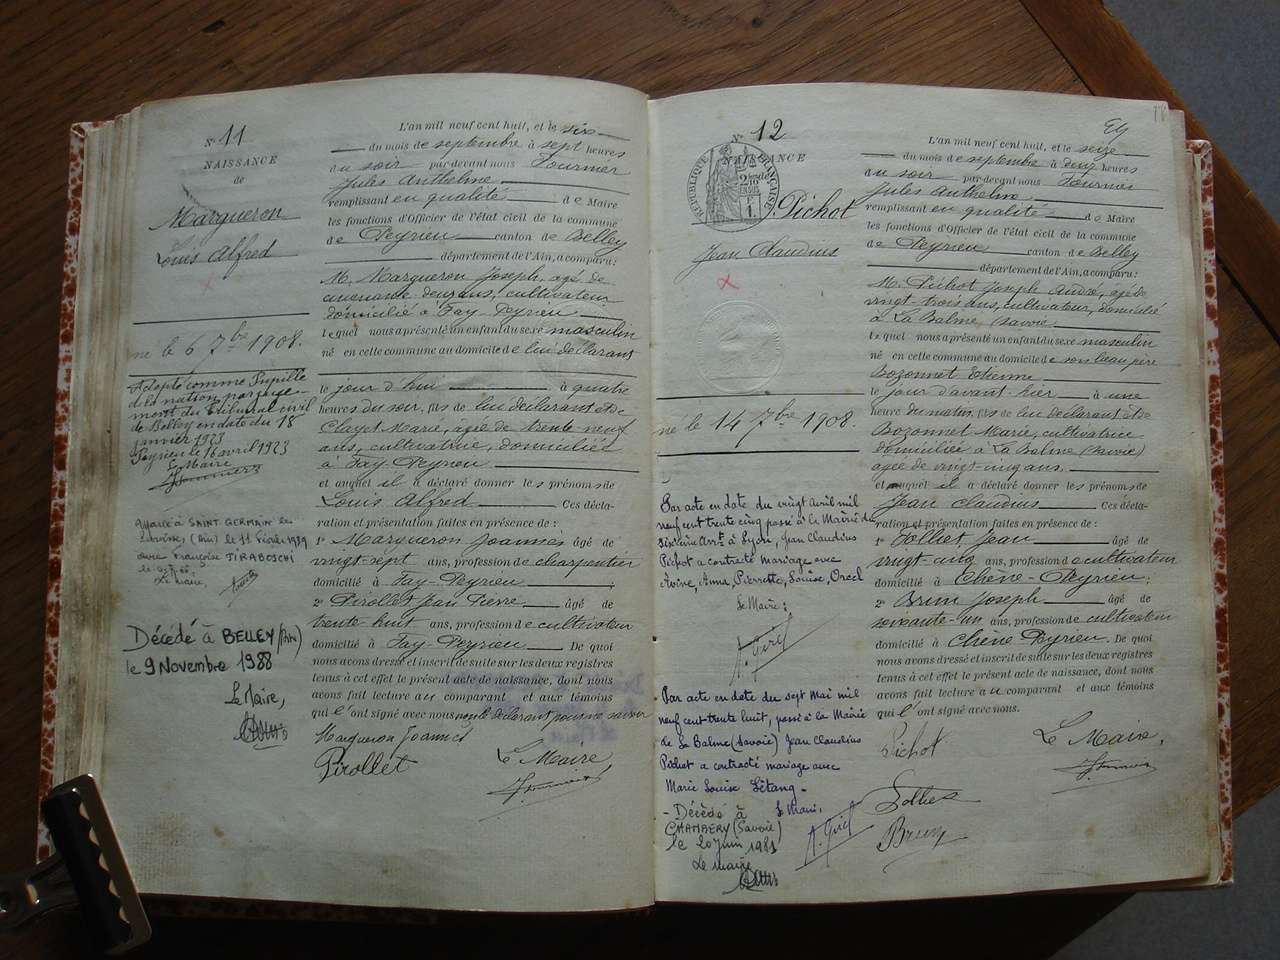 N° 11
NAISSANCE
de
Margueron
Louis Alfred
né le 6 7bre 1908.
Adopté comme Pupille
de la nation par juge-
ment du tribunal civil
de Belley en date du 18
janvier 1923
Peyrieu le 16 avril 1923
Le Maire
Marié à SAINT GERMAIN les
(Ain) le 11 Février 1939
avec Françoise TIRABOSCHI
Le Maire,
Décédé à BELLEY (Ain)
le 9 Novembre 1988
Le Maire,
L'an mil neuf cent huit, et le six
du mois de septembre à sept heures
du soir par-devant nous Fournier
Jules Anthelme
remplissant en qualité de Maire
les fonctions d'Officier de l'état civil de la commune
de Peyrieu canton de Belley
département de l'Ain, a comparu:
M. Margueron Joseph, agé de
cinquante deux ans, cultivateur
domicilié à Fay-Peyrieu
lequel nous a présenté un enfant du sexe masculin
né en cette commune au domicile de lui déclarant
le jour d'hui à quatre
heures du soir, fils de lui déclarant et de
Clayet Marie, agée de trente neuf
ans, cultivatrice, domiciliée
à Fay-Peyrieu
et auquel il a déclaré donner les prénoms de
Louis Alfred Ces décla-
ration et présentation faites en présence de :
1° Margueron Joannès âgé de
vingt-sept ans, profession de charpentier
domicilié à Fay-Peyrieu ;
2° Pirollet Jean Pierre âgé de
trente huit ans, profession de cultivateur
domicilié à Fay-Peyrieu De quoi
nous avons dressé et inscrit de suite sur les deux registres
tenus à cet effet le présent acte de naissance, dont nous
avons fait lecture au comparant et aux témoins
qui l'ont signé avec nous non le déclarant pour ne savoir
Margueron Joannès
Pirollet
Le Maire
N° 12
NAISSANCE
RÉPUBLIQUE FRANÇAISE
Pichot
Jean Claudius
né le 14 7bre 1908.
Par acte en date du vingt avril mil
neuf cent trente cinq passé à la Mairie du
sixième Arrt à Lyon, Jean Claudius
Pichot a contracté mariage avec
Avine, Anna, Pierrette, Louise, Orcel
Le Maire :
Par acte en date du sept Mai mil
neuf cent trente huit, passé à la Mairie
de La Balme (Savoie) Jean Claudius
Pichot a contracté mariage avec
Marie Louise Létang -
Le Maire,
- Décédé à
CHAMBERY (Savoie)
le 20 juin 1981
Le maire
L'an mil neuf cent huit, et le seize
du mois de septembre à deux heures
du soir par-devant nous Fournier
Jules Anthelme
remplissant en qualité de Maire
les fonctions d'Officier de l'état civil de la commune
de Peyrieu canton de Belley
département de l'Ain, a comparu:
M. Pichot Joseph André, agé de
vingt-trois ans, cultivateur, domicilié
à La Balme (Savoie)
lequel nous a présenté un enfant du sexe masculin
né en cette commune au domicile de son beau père
Bozonnet Etienne
le jour d'avant-hier à une
heure du matin, fils de lui déclarant et de
Bozonnet Marie, cultivatrice
domiciliée à La Balme (Savoie)
agée de vingt-cinq ans.
et auquel il a déclaré donner les prénoms de
Jean Claudius Ces décla-
ration et présentation faites en présence de :
1° Tolliet Jean âgé de
vingt-cinq ans, profession de cultivateur
domicilié à Chêne-Peyrieu ;
2° Brun Joseph âgé de
soixante-un ans, profession de cultivateur
domicilié à Chêne Peyrieu. De quoi
nous avons dressé et inscrit de suite sur les deux registres
tenus à cet effet le présent acte de naissance, dont nous
avons fait lecture au comparant et aux témoins
qui l'ont signé avec nous.
Pichot
Le Maire,
Brun